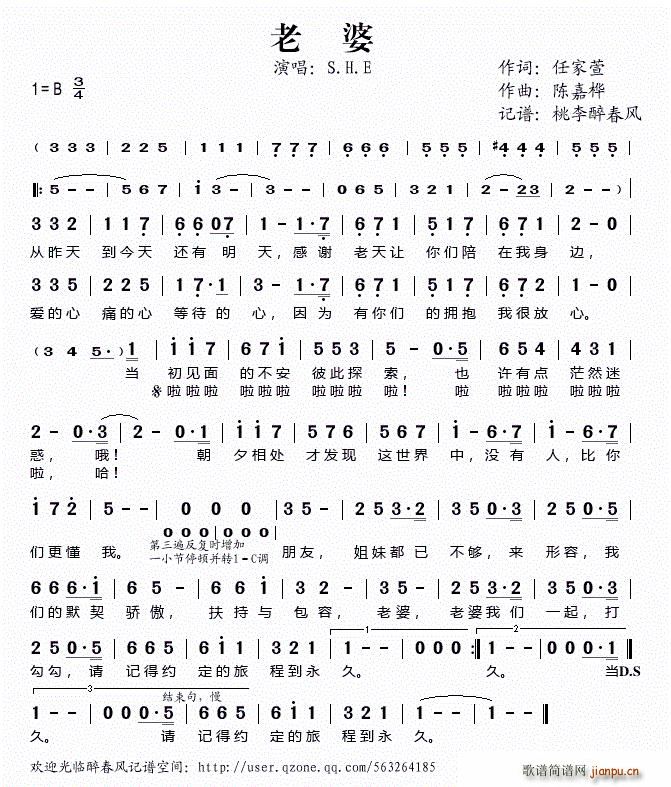 老 婆
演唱：S.H.E
作词：任家萱
1=B 3/4
作曲：陈嘉桦
记谱：桃李醉春风
( 3 3 3 | 2 2 5 | 1 1 1 | 7 7 7 | 6 6 6 | 5 5 5 | #4 4 4 | 5 5 5 |
‖: 5 - - | 5 6 7 | i 3 - | 3 - - | 0 6 5 | 3 2 1 | 2 - 23 | 2 - - ) |
3 3 2 | 1 1 7 | 6 6 07 | 1 - 1·7 | 6 7 1 | 5 1 7 | 6 7 1 | 2 - 0 |
从昨天 到今天 还有 明 天,感 谢 老天让 你们陪 在我身 边,
3 3 5 | 2 2 5 | 1 7·1 | 3 - 1·7 | 6 7 1 | 5 1 7 | 6 7 2 | 1 - 0 |
爱的心 痛的心 等待的 心,因 为 有你们 的拥抱 我很放 心。
( 3 4 5· ) 1 | i i 7 | 6 7 i | 5 5 3 | 5 - 0·5 | 6 5 4 | 4 3 1 |
当 初见面 的不安 彼此探 索, 也 许有点 茫然迷
𝄋 啦啦啦 啦啦啦 啦啦啦 啦! 啦 啦啦啦 啦啦啦
2 - 0·3 | 2 - 0·1 | i i 7 | 5 7 6 | 5 6 7 | i - 6·7 | i - 6·7 |
惑, 哦! 朝 夕相处 才发现 这世界 中,没有 人,比你
啦, 哈!
i 7 2 | 5 - - | 0 0 0 | 3 5 - | 2 5 3·2 | 3 5 0·3 | 2 5 0·5 |
0 0 0 | 0 0 0 |
们更懂 我。 第三遍反复时增加 朋友, 姐妹都已 不够,来 形容,我
一小节停顿并转1=C调
6 6 6·i | 6 5 - | 6 6 5 | 3 5 - | 3 5 - | 2 5 3·2 | 3 5 0·3 |
们的默契 骄傲, 扶持与 包容, 老婆, 老婆我们 一起,打
2 5 0·5 | 6 6 5 | 6 i i | 3 2 1 | 1 1 - - | 0 0 0 :‖ 2 1 - - | 0 0 0·1 ‖
勾勾,请 记得约 定的旅 程到永 久。 久。 当D.S
3 结束句,慢
1 - - | 0 0 0·5 | 6 6 5 | 6 i i | 3 2 1 | 1 - - | 1 - - ‖
久。 请 记得约 定的旅 程到永 久。
欢迎光临醉春风记谱空间：http://user.qzone.qq.com/563264185
歌谱简谱网 jianpu.cn